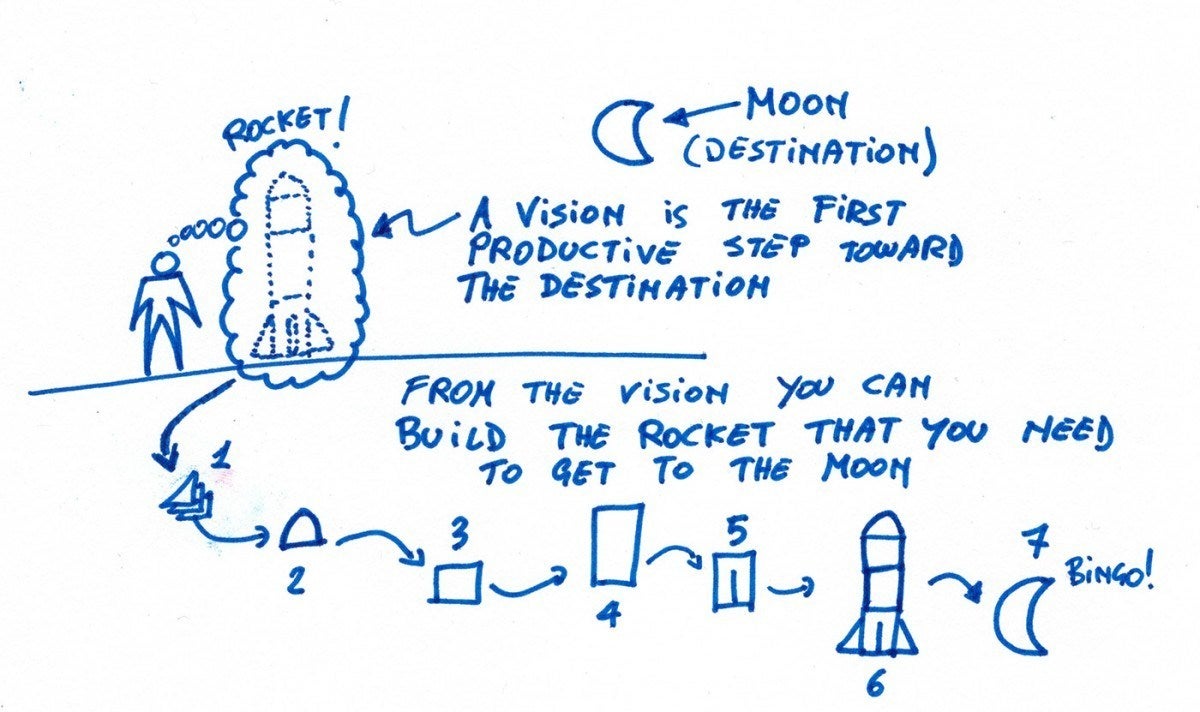 ROCKET!
MOON
(DESTINATION)
A VISION IS THE FIRST
PRODUCTIVE STEP TOWARD
THE DESTINATION
FROM THE VISION YOU CAN
BUILD THE ROCKET THAT YOU NEED
TO GET TO THE MOON
1
2
3
4
5
6
7
BINGO!